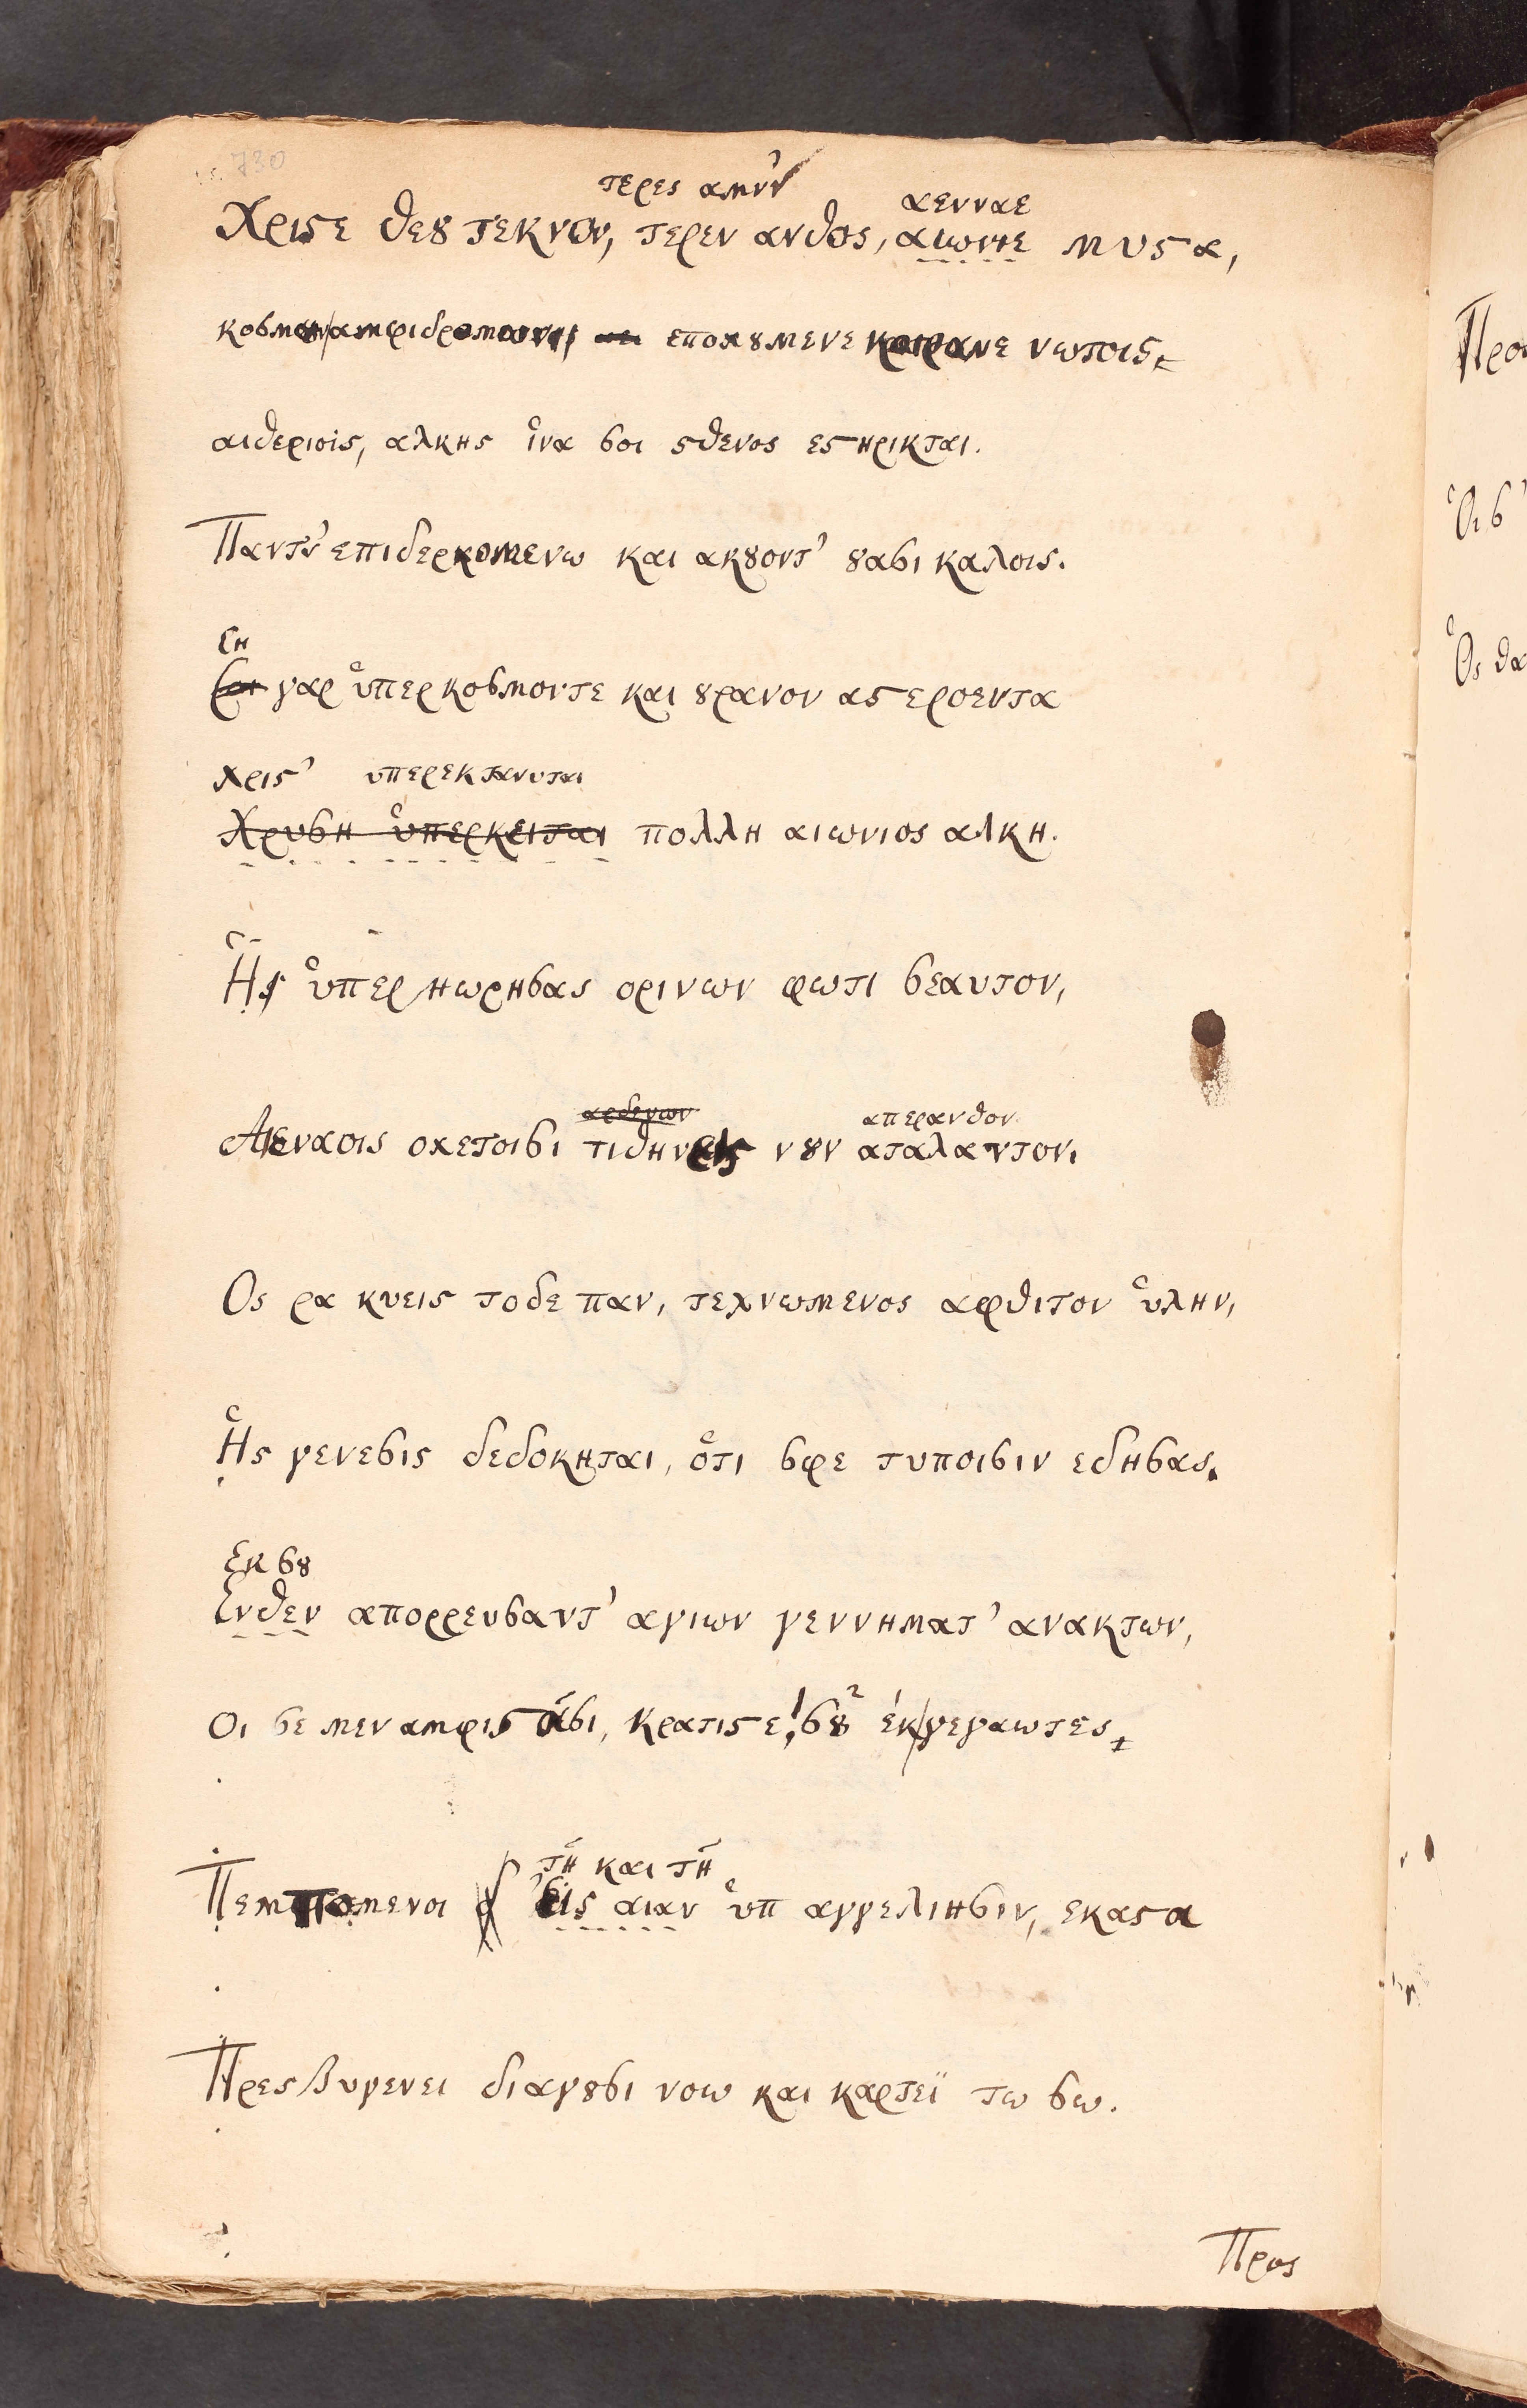 730
τερες αμνν̓ αενναε
Χριϛε θεȣ τεκνον, τερεν ανθος, αιωνιε μυϛα,
κοσμον αμφιδρομων εποχȣμενε κοιρανε νωτοις
αιθεριοις, αλκης ἱνα σοι σθενος εϛηρικται.
Παντ' επιδερκομενω και ακȣοντ' ȣασι καλοις.
Ση
σοι γαρ ὑπερ κοσμοντε και ȣρανον αϛεροεντα
χριϛ' υπερεκτανυται
Χρυση ὑπερκειται πολλη αιωνιος αλκη.
Ἡς ὑπερ ηωρησας ορινων φωτι σεαυτον,
αρδευων απερανθον
Αεναοις οχετοισι τιθηνεις νȣν αταλαντον,
Ος ρα κυεις τοδε παν, τεχνωμενος αφθιτον ὑλην,
Ἡς γενεσις δεδοκηται, ὁτι σφε τυποισιν εδησας.
Εκ σȣ
Ενθεν απορρευσαντ' αγιων γεννηματ' ανακτων,
Οι σε μεν αμφις ἁσι, κρατιϛε, σȣ εκγεγαωτες
τῆ και τῆ
Πεμπομενοι εις αιαν ὑπ αγγελιησιν, εκαϛα
Πρεσβυγενει διαγȣσι νοω και καρτεϊ τω σω.
Προς